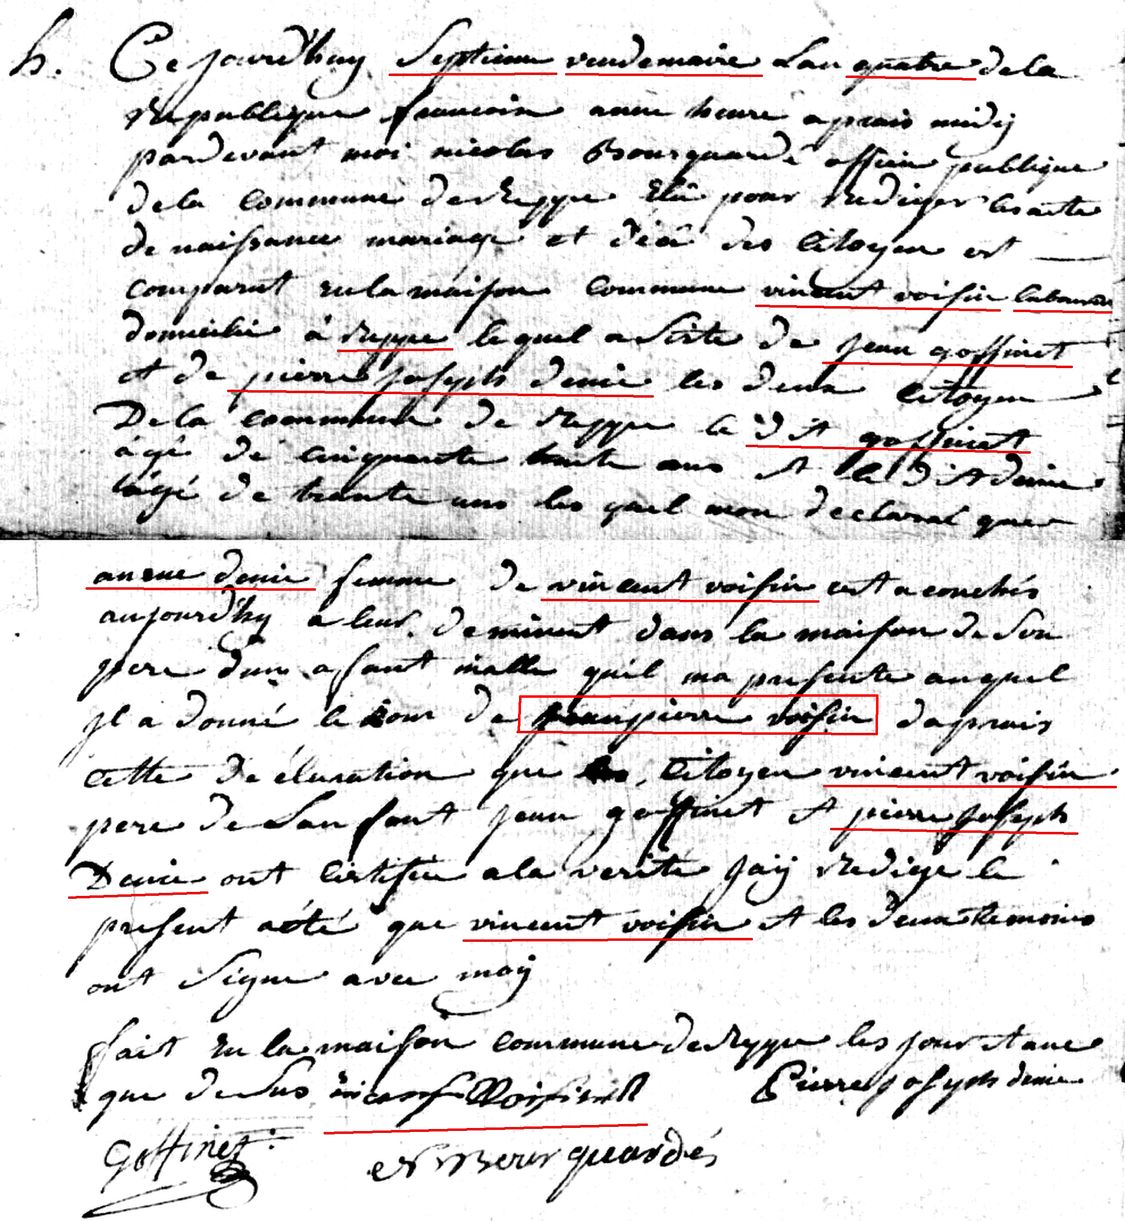 h. Ce jourdhuy Septieme vendemaire Lan quatre de la
republique francoise anne heure aprais midÿ
pardevant moi nicolas Bourquardé officie publique
de la commune de Reppe Elû pour rediger les acte
de naissance mariage et décê des Citoyen est
comparut en la maison commune vincent voisin laboureur
domicilié à reppe le quel asisté de jean goffinet
et de pierre joseph denie les deux Citoyen
De la commune de Reppe le dit goffinet
âgé de cinquante huite ans et le dit denie
lâgé de trente ans les quel mon declaral que
anne denie femme de vincent voisin est acouchés
aujourdhy a leur de minuit dans la maison de Son
pere dun afant malle quil ma presente auquel
jl a donné le nom de jeanpierre voisin daprais
cette de claration que Citoyen vincent voisin
pere de Lanfant jean goffinet et pierre joseph
Denie ont Certifiee a la verité Jaÿ redige le
present acté que vincent voisin et les deux temoins
ont Signe avec moÿ
fait en la maison commune de Reppe les jour et ane
que deSus vincent Voisin Pierre joseph denie
Goffinet N Bourquardés